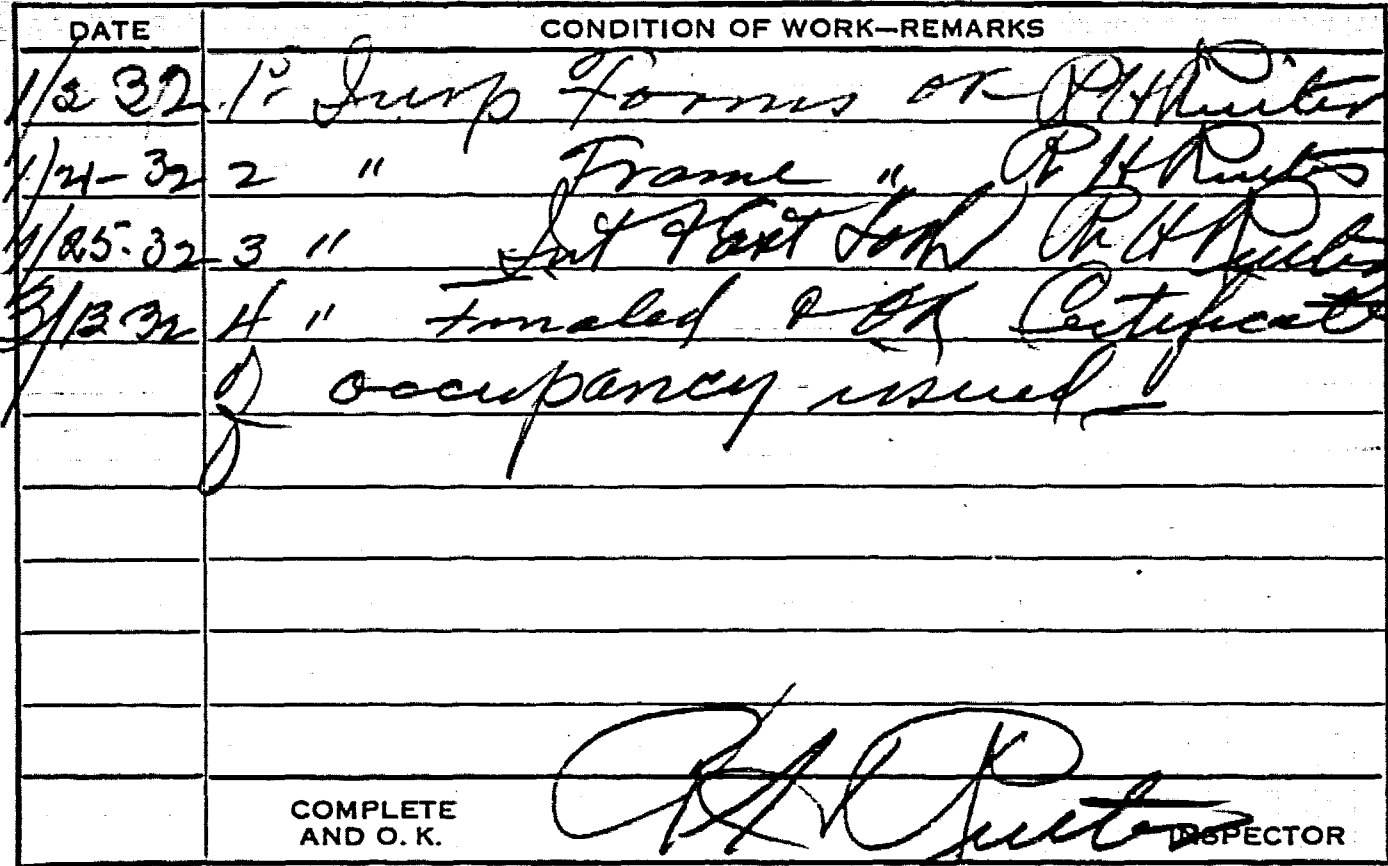 DATE CONDITION OF WORK—REMARKS
1/2 32 1st Insp Forms OK R H Ruiter
1/21-32 2 " Frame " R H Ruiter
1/25-32 3 " Int & Ext Lath R H Ruiter
3/13 32 4 " Finaled & OK Certificate
of occupancy issued
COMPLETE
AND O. K. R H Ruiter INSPECTOR